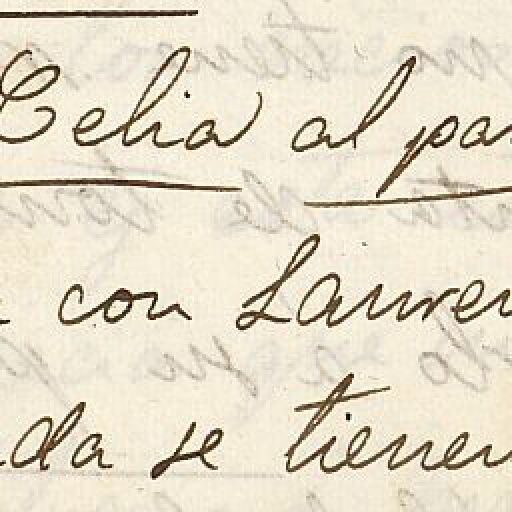 Celia al pa
con Lauren
da se tienen